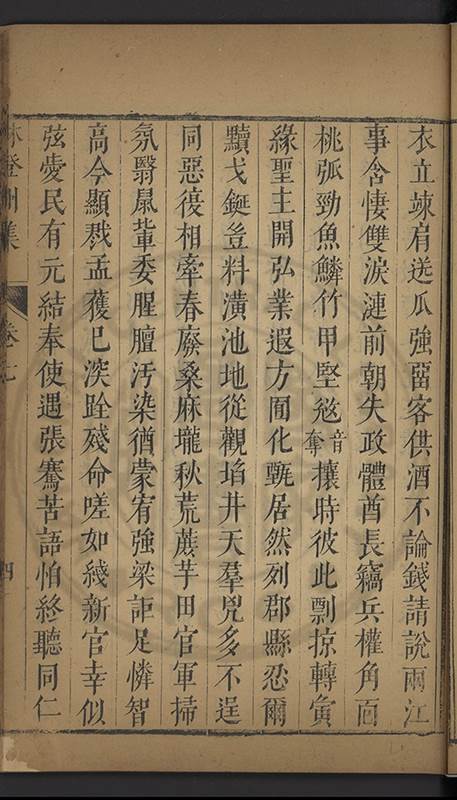 衣立竦肩送瓜強留客供酒不論錢請說兩江
事含悽雙淚漣前朝失政體酋長竊兵權角面
桃弧勁魚鱗竹甲堅㐹音奪攘時彼此剽掠轉夤
緣聖主開弘業遐方囿化甄居然列郡縣忍爾
黷戈鋋豈料潢池地從觀埳井天羣兇多不逞
同惡復相牽春廢桑麻壠秋荒蔗芋田官軍掃
氛翳鼠輩委腥膻汚染猶蒙宥強梁詎足憐智
高今顯戮孟獲已深跧殘命嗟如綫新官幸似
弦愛民有元結奉使遇張騫苦語怕終聽同仁
林登州集 卷七 四